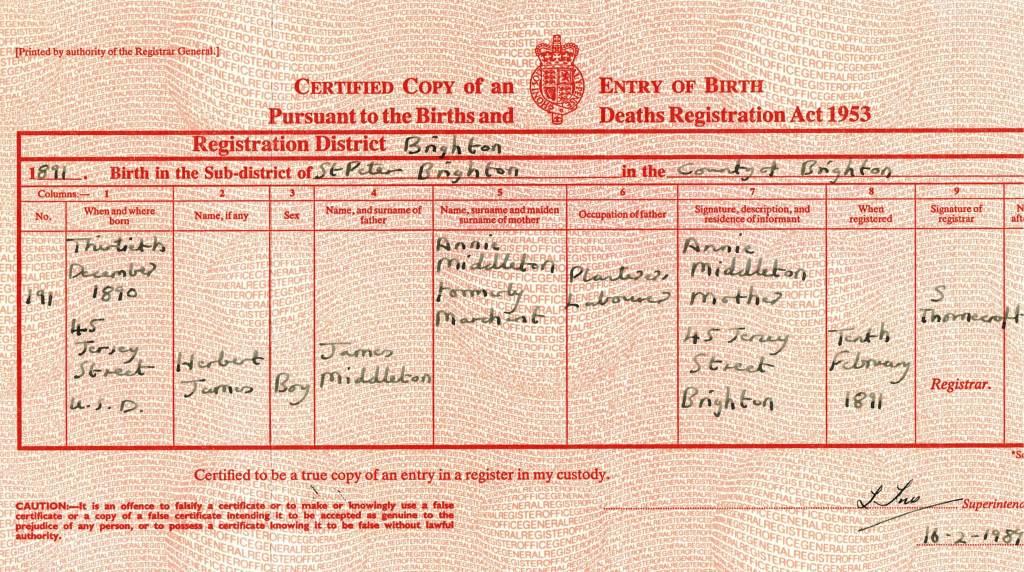 [Printed by authority of the Registrar General.]
CERTIFIED COPY of an ENTRY OF BIRTH
Pursuant to the Births and Deaths Registration Act 1953
Registration District Brighton
1891. Birth in the Sub-district of St Peter Brighton in the County of Brighton
Columns:— 1 2 3 4 5 6 7 8 9
No. When and where born Name, if any Sex Name, and surname of father Name, surname and maiden surname of mother Occupation of father Signature, description, and residence of informant When registered Signature of registrar
191
Thirtieth
December
1890
45
Jersey
Street
U.S.D.
Herbert
James
Boy
James
Middleton
Annie
Middleton
formerly
Marchant
Labourer
Annie
Middleton
Mother
45 Jersey
Street
Brighton
Tenth
February
1891
S
Thornecroft
Registrar.
Certified to be a true copy of an entry in a register in my custody.
CAUTION:—It is an offence to falsify a certificate or to make or knowingly use a false
certificate or a copy of a false certificate intending it to be accepted as genuine to the
prejudice of any person, or to possess a certificate knowing it to be false without lawful
authority.
16-2-1987